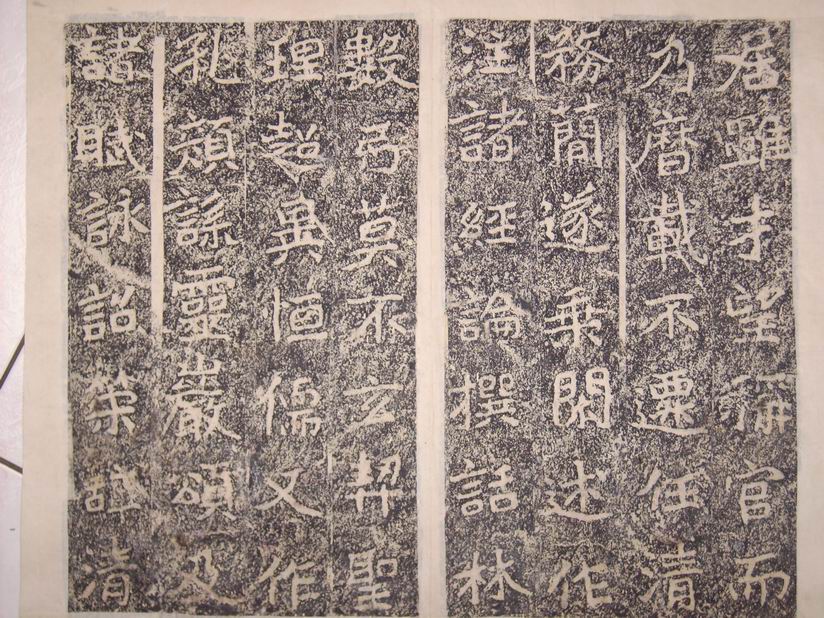 居雖才望稱官而
乃暦載不遷任清
務簡遂乘閑述作
注諸經論撰話林
數弓莫不玄契聖
理超異恒儒又作
孔顏誄靈巖頌及
諸賦詠詔策清